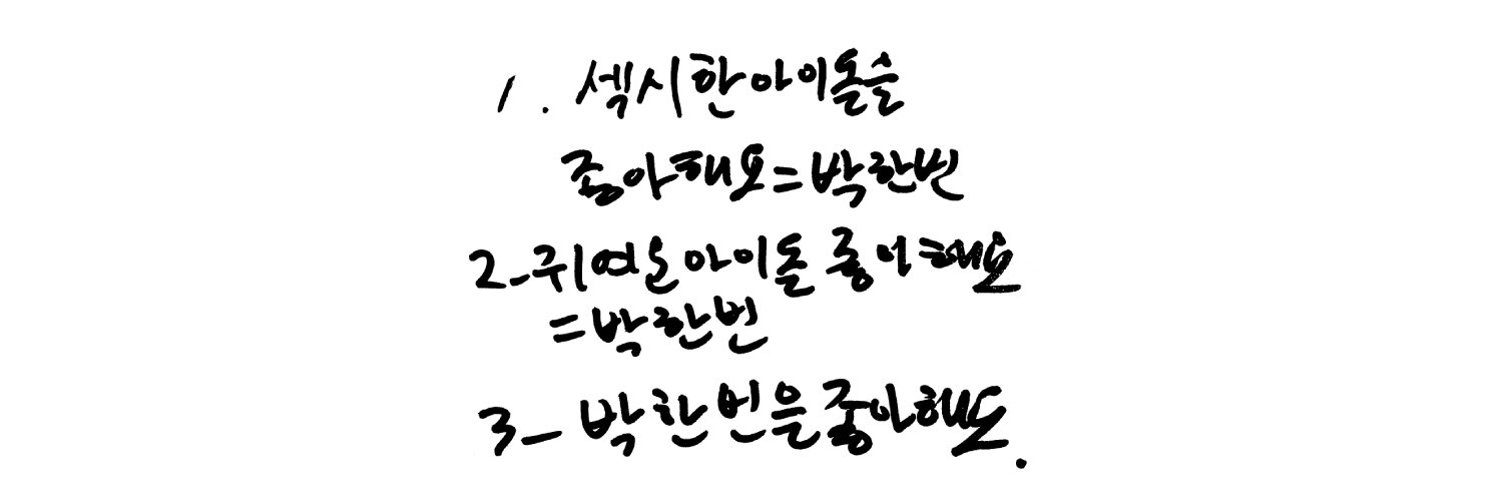 1. 섹시한아이돌을
좋아해요=박한빈
2-귀여운아이돌 좋아해요
=박한빈
3-박한빈을좋아해요.